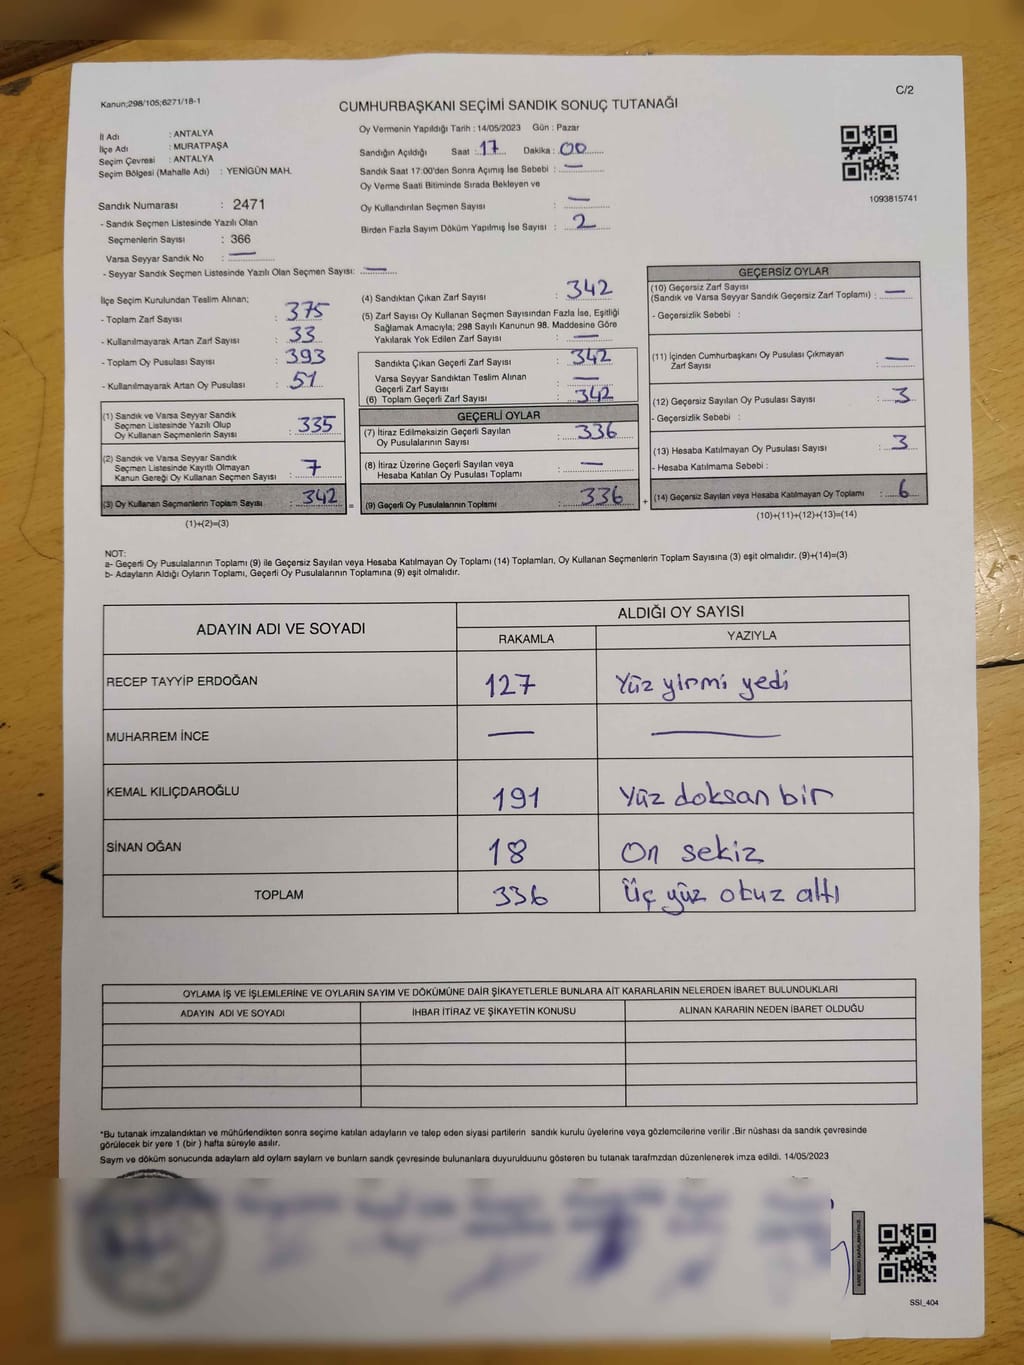 Kanun;298/105;6271/18-1
C/2
CUMHURBAŞKANI SEÇİMİ SANDIK SONUÇ TUTANAĞI
İl Adı : ANTALYA
İlçe Adı : MURATPAŞA
Seçim Çevresi : ANTALYA
Seçim Bölgesi (Mahalle Adı) : YENİGÜN MAH.
Sandık Numarası : 2471
- Sandık Seçmen Listesinde Yazılı Olan
Seçmenlerin Sayısı : 366
Varsa Seyyar Sandık No : —
- Seyyar Sandık Seçmen Listesinde Yazılı Olan Seçmen Sayısı: —
Oy Vermenin Yapıldığı Tarih : 14/05/2023 Gün : Pazar
Sandığın Açıldığı Saat : 17 Dakika : 00
Sandık Saat 17:00'den Sonra Açımış İse Sebebi : —
Oy Verme Saati Bitiminde Sırada Bekleyen ve
Oy Kullandırılan Seçmen Sayısı : —
Birden Fazla Sayım Döküm Yapılmış İse Sayısı : 2
1093815741
İlçe Seçim Kurulundan Teslim Alınan;
- Toplam Zarf Sayısı : 375
- Kullanılmayarak Artan Zarf Sayısı : 33
- Toplam Oy Pusulası Sayısı : 393
- Kullanılmayarak Artan Oy Pusulası : 51
(1) Sandık ve Varsa Seyyar Sandık
Seçmen Listesinde Yazılı Olup
Oy Kullanan Seçmenlerin Sayısı : 335
(2) Sandık ve Varsa Seyyar Sandık
Seçmen Listesinde Kayıtlı Olmayan
Kanun Gereği Oy Kullanan Seçmen Sayısı : 7
(3) Oy Kullanan Seçmenlerin Toplam Sayısı : 342
(1)+(2)=(3)
(4) Sandıktan Çıkan Zarf Sayısı : 342
(5) Zarf Sayısı Oy Kullanan Seçmen Sayısından Fazla İse, Eşitliği
Sağlamak Amacıyla; 298 Sayılı Kanunun 98. Maddesine Göre
Yakılarak Yok Edilen Zarf Sayısı : —
Sandıkta Çıkan Geçerli Zarf Sayısı : 342
Varsa Seyyar Sandıktan Teslim Alınan
Geçerli Zarf Sayısı : —
(6) Toplam Geçerli Zarf Sayısı : 342
GEÇERLİ OYLAR
(7) İtiraz Edilmeksizin Geçerli Sayılan
Oy Pusulalarının Sayısı : 336
(8) İtiraz Üzerine Geçerli Sayılan veya
Hesaba Katılan Oy Pusulası Toplamı : —
= (9) Geçerli Oy Pusulalarının Toplamı : 336 +
GEÇERSİZ OYLAR
(10) Geçersiz Zarf Sayısı
(Sandık ve Varsa Seyyar Sandık Geçersiz Zarf Toplamı) : —
- Geçersizlik Sebebi :
(11) İçinden Cumhurbaşkanı Oy Pusulası Çıkmayan
Zarf Sayısı : —
(12) Geçersiz Sayılan Oy Pusulası Sayısı : 3
- Geçersizlik Sebebi :
(13) Hesaba Katılmayan Oy Pusulası Sayısı : 3
- Hesaba Katılmama Sebebi :
(14) Geçersiz Sayılan veya Hesaba Katılmayan Oy Toplamı : 6
(10)+(11)+(12)+(13)=(14)
NOT:
a- Geçerli Oy Pusulalarının Toplamı (9) ile Geçersiz Sayılan veya Hesaba Katılmayan Oy Toplamı (14) Toplamları, Oy Kullanan Seçmenlerin Toplam Sayısına (3) eşit olmalıdır. (9)+(14)=(3)
b- Adayların Aldığı Oyların Toplamı, Geçerli Oy Pusulalarının Toplamına (9) eşit olmalıdır.
ADAYIN ADI VE SOYADI ALDIĞI OY SAYISI
RAKAMLA YAZIYLA
RECEP TAYYİP ERDOĞAN 127 Yüz yirmi yedi
MUHARREM İNCE — —
KEMAL KILIÇDAROĞLU 191 Yüz doksan bir
SİNAN OĞAN 18 On sekiz
TOPLAM 336 Üç yüz otuz altı
OYLAMA İŞ VE İŞLEMLERİNE VE OYLARIN SAYIM VE DÖKÜMÜNE DAİR ŞİKAYETLERLE BUNLARA AİT KARARLARIN NELERDEN İBARET BULUNDUKLARI
ADAYIN ADI VE SOYADI İHBAR İTİRAZ VE ŞİKAYETİN KONUSU ALINAN KARARIN NEDEN İBARET OLDUĞU
*Bu tutanak imzalandıktan ve mühürlendikten sonra seçime katılan adayların ve talep eden siyasi partilerin sandık kurulu üyelerine veya gözlemcilerine verilir .Bir nüshası da sandık çevresinde
görülecek bir yere 1 (bir ) hafta süreyle asılır.
Sayım ve döküm sonucunda adayların ald oyların sayların ve bunların sandk çevresinde bulunanlara duyurulduunu gösteren bu tutanak tarafmzdan düzenlenerek imza edildi. 14/05/2023
SSI_404